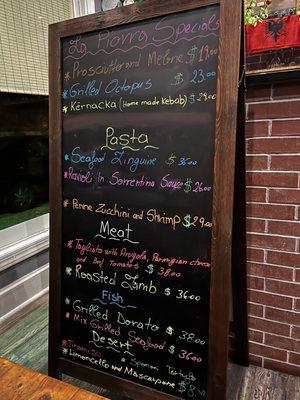 La Piazza Specials
* Prosciutto and Melone $19.00
* Grilled Octopus $ 23.00
* Kërnacka (Home made Kebab) $28.00
Pasta
* Seafood Linguine $ 35.00
* Ravioli In Sorrentina Sauce $26.00
* Penne Zucchini and Shrimp $29.00
Meat
* Tagliata with Arugula, Parmigian cheese
and Beef Tomatoes $ 38.00
* Roasted Lamb $ 36.00
Fish
* Grilled Dorato $ 38.00
* Mix Grilled Seafood $ 36.00
Desert
* Tiramisu
* Limoncello and Mascarpone $8.00